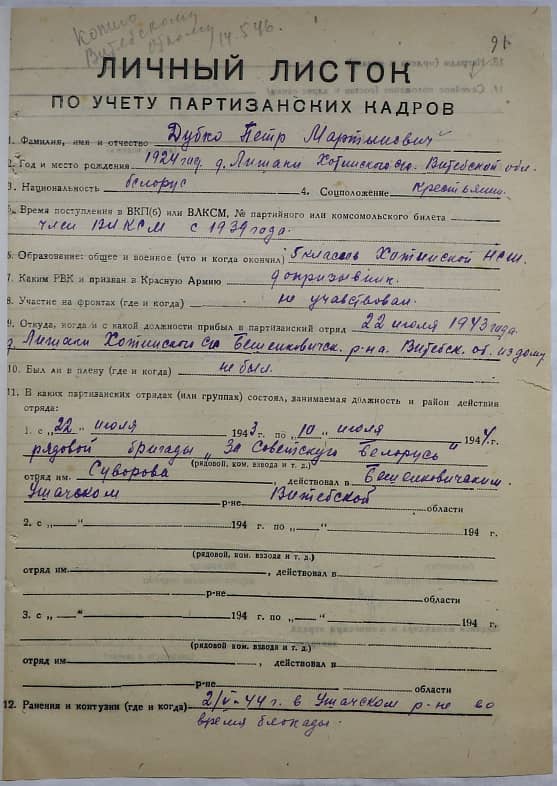 Копию
Витебскому
Обкому 14.5.46.
91
ЛИЧНЫЙ ЛИСТОК
ПО УЧЕТУ ПАРТИЗАНСКИХ КАДРОВ
1. Фамилия, имя и отчество Дубко Петр Мартынович
2. Год и место рождения 1924 год д. Лишаки Хотинского с/с. Витебской обл.
3. Национальность белорус 4. Соцположение крестьянин
5. Время поступления в ВКП(б) или ВЛКСМ, № партийного или комсомольского билета
член ВЛКСМ с 1939 года.
6. Образование: общее и военное (что и когда окончил) 5 классов Хотинской НСШ.
7. Каким РВК и призван в Красную Армию допризывник.
8. Участие на фронтах (где и когда) не учавствовал.
9. Откуда, когда и с какой должности прибыл в партизанский отряд 22 июля 1943 года
д. Лишаки Хотинского с/с Бешенковичск. р-на. Витебск. об. из дому
10. Был ли в плену (где и когда) не был.
11. В каких партизанских отрядах (или группах) состоял, занимаемая должность и район действия
отряда:
1. с „22" июля 1943 г. по „10" июля 1944 г.
рядовой бригады „За Советскую Белорусь"
(рядовой, ком. взвода и т. д.)
отряд им. Суворова, действовал в Бешенковичским
Ушачском р-не Витебской области
2. с „ " 194 г. по „ " 194 г.
(рядовой, ком. взвода и т. д.)
отряд им. , действовал в
р-не области
3. с „ " 194 г. по „ " 194 г.
(рядовой, ком. взвода и т. д.)
отряд им , действовал в
р-не области
12. Ранения и контузии (где и когда) 2/V-44 г. в Ушачском р-не во
время блокады.